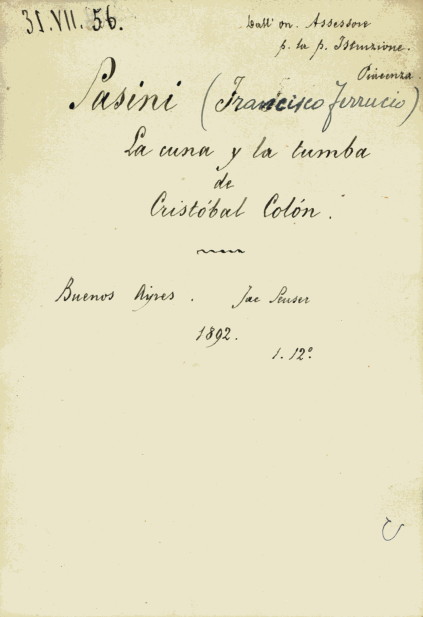 31.VII.56.
Dall' on. Assessore
p. la p. Istruzione.
Piacenza
Pasini (Francisco Ferruccio)
La cuna y la tumba
de
Cristóbal Colón.
Buenos Ayres. Jac Peuser
1892.
1. 12°.